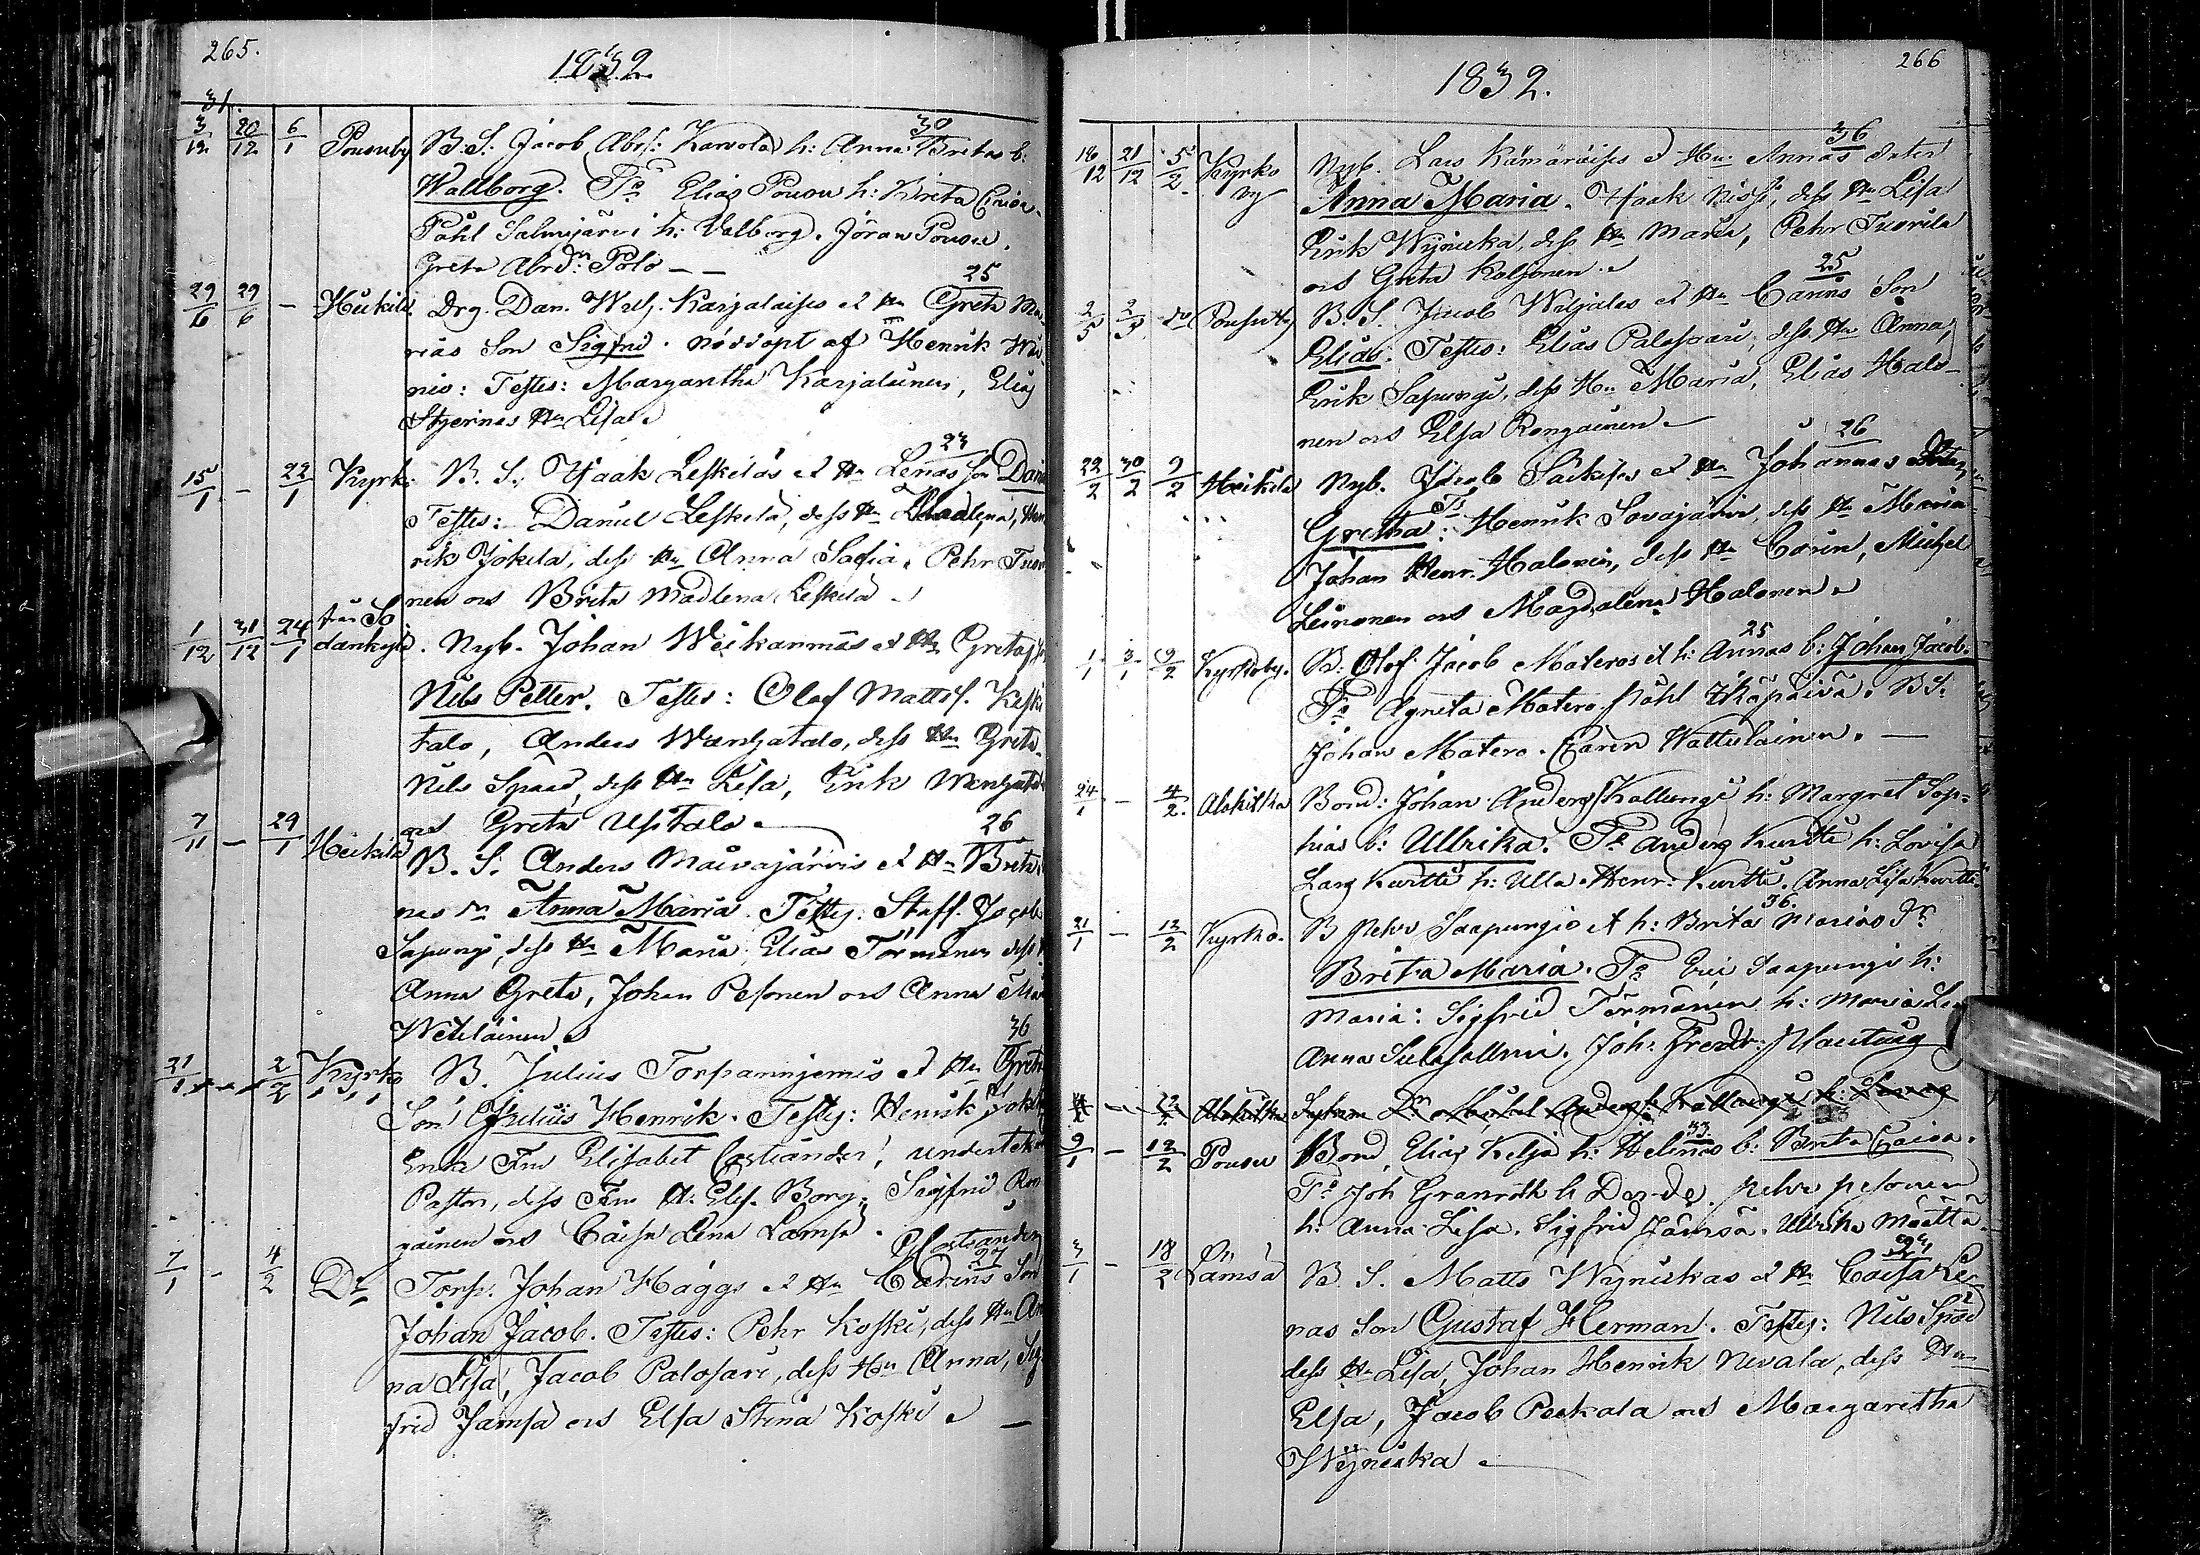 265.
1832.
31.
3/12 20/12 6/1 Pousuby B. S. Jacob Abrs: Karvola h: Anna Britas b: 30
Wallborg. Ts Elias Pousu h: Brita Caisa.
Påhl Salmijärvi h: Valborg. Jöran Pousu.
Greta Abrdr Polo — —
29/6 29/6 — Heikilä Drg. Dan. Wilh. Karjalaises et Hu Greta Ma- 25
rias Son Sigfrid. nöddöpt af Henrik
nio: Testes: Margaretha Karjalainen, Elias
Stjernas Hu Lisa.
15/1 — 22/1 Kyrk. B. S. Isaak Leskeläs et Hu Lenas son Dani 23
Testes: Daniel Leskelä, dess Hu Madlena, Hen
rik Jokela, dess Hu Anna Safia. Pehr Tuor
nen och Brita Madlena Leskelä
1/12 31/12 24/1 från So
dankylä. Nyb. Johan Weikanmaas et Hu Gretas
Nils Petter. Testes: Olof Mattss. Keski
talo, Anders Wanhatalo, dess Hu Greta.
Nils Spaad, dess Hu Lisa, Erik Wanhatal
och Greta Upitalo.
7/11 — 29/1 Heikilä B. S. Anders Maivajärvis et Hu Brita 26
nas dr Anna Maria. Testes: Staff. Jacob
Sapungi, dess Hu Maria, Elias Törmänen dess
Anna Greta, Johan Pesonen och Anna Mar
Wetelainen
21/1 2/2 Kyrko B. Julius Torpanniemis et Hu Greta 36
Son Julius Henrik. Testes: Henrik Jok
Enke Fru Elisabet Castrander, undertek
Pastor, dess Fru A: Elis. Borg. Sigfrid Ron
gainen och Caisa Lena Lamsa.
Castrander
7/1 - 4/2 Do Torp. Johan Häggs et Hu Carins Son 27
Johan Jacob. Testes: Pehr Koski, dess Hu An
na Lisa, Jacob Palosari, dess Hu Anna, Sig
frid Jamsa och Elsa Stina Koski
266
1832.
18/12 21/12 5/2 Kyrko
by Nyb. Lars Kämäräises et Hu Annas dotter 36
Anna Maria. Isaak Nissi, dess Hu Lisa
Erik Wyinicka, dess Hu Maria, Pehr Tuorila
och Greta Koljonen.
2/5 2/5 do Pousuby B. S. Jacob Wiljalas et Hu Carins Son 25
Elias. Testes: Elias Palosaari, dess Hu Anna,
Erik Sapungi, dess Hu Maria, Elias Halo-
nen och Elsa Rongainen
22/2 30/2 9/2 Heikilä Nyb. Jacob Säikises et Hu Johannas dotter 26
Gretha: Ts Henrik Sovajärvi, dess Hu Maria
Johan Henr. Halonen, dess Hu Carin, Michel
Leinonen och Magdalena Halonen.
1/1 3/1 9/2 Kyrkoby. B. Olof Jacob Materos et h: Annas b: Johan Jacob. 25
Ts Agneta Matero. Påhl Ikäpäivä. B S.
Johan Matero. Caren Wattulainen. —
24/1 — 4/2. Alakitka Bond: Johan Anderss Kallunge h: Margret Sop-
hias b: Ullrika. Ts Anders Kurtti h: Lovisa
Lars Kurtti h: Ulla. Henr. Kurtti. Anna Lisa Kurtti
21/1 — 12/2 Kyrko. B Pehr Saapungis et h: Brita Marias Dr 36.
Brita Maria. Ts Eric Saapungi h:
Maria: Sigfrid Törmänen h: Maria Lena
Anna Sulasallmi. Joh: Fredr: Planting
Alakitka
9/1 — 12/2 Pousu Bond, Elias Kilja h: Helenas b: Brita Caisa. 33
Ts Joh Granroth h Dor-de. Pehr Pesonen
h: Anna Lisa. Sigfrid Jämsä. Ullrika Määttä
3/1 — 18/2 Lämsä B. S. Matts Wynickas et Hu Caisa Le- 24
nas Son Gustaf Herman. Testes: Nils Späd
dess Hu Lisa, Johan Henrik Nevala, dess Hu
Elsa, Jacob Peckala och Margaretha
Wyinicka